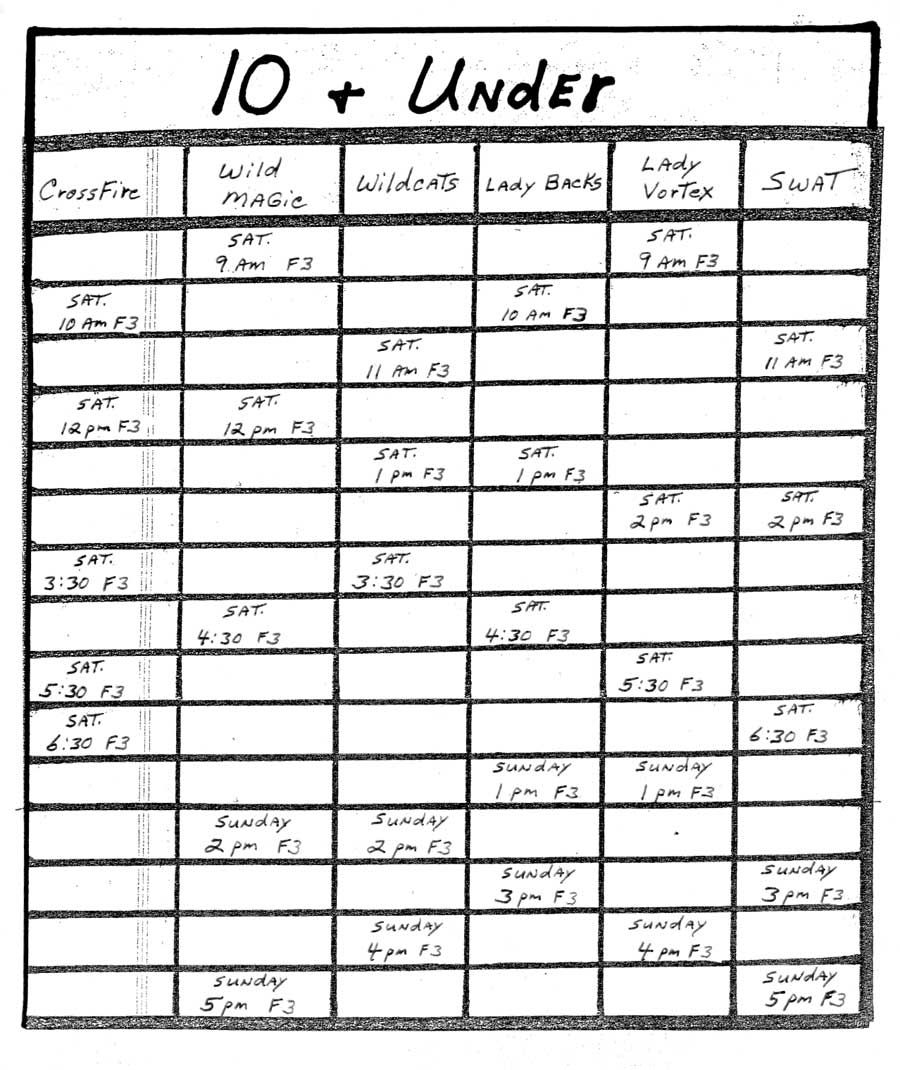 10 + UNDER
CrossFire
Wild
MAGic
WildcATs
LADY BAcKs
LAdy
VorTex
SWAT
SAT.
9 Am F3
SAT.
9 Am F3
SAT.
10 Am F3
SAT.
10 Am F3
SAT.
11 Am F3
SAT.
11 Am F3
SAT.
12 pm F3
SAT.
12 pm F3
SAT.
1 pm F3
SAT.
1 pm F3
SAT.
2 pm F3
SAT.
2 pm F3
SAT.
3:30 F3
SAT.
3:30 F3
SAT.
4:30 F3
SAT.
4:30 F3
SAT.
5:30 F3
SAT.
5:30 F3
SAT.
6:30 F3
SAT.
6:30 F3
SUNdAY
1 pm F3
SUNdAY
1 pm F3
SUNdAY
2 pm F3
SUNdAY
2 pm F3
SUNdAY
3 pm F3
SUNdAY
3 pm F3
SUNdAY
4 pm F3
SUNdAY
4 pm F3
SUNdAY
5 pm F3
SUNdAY
5 pm F3